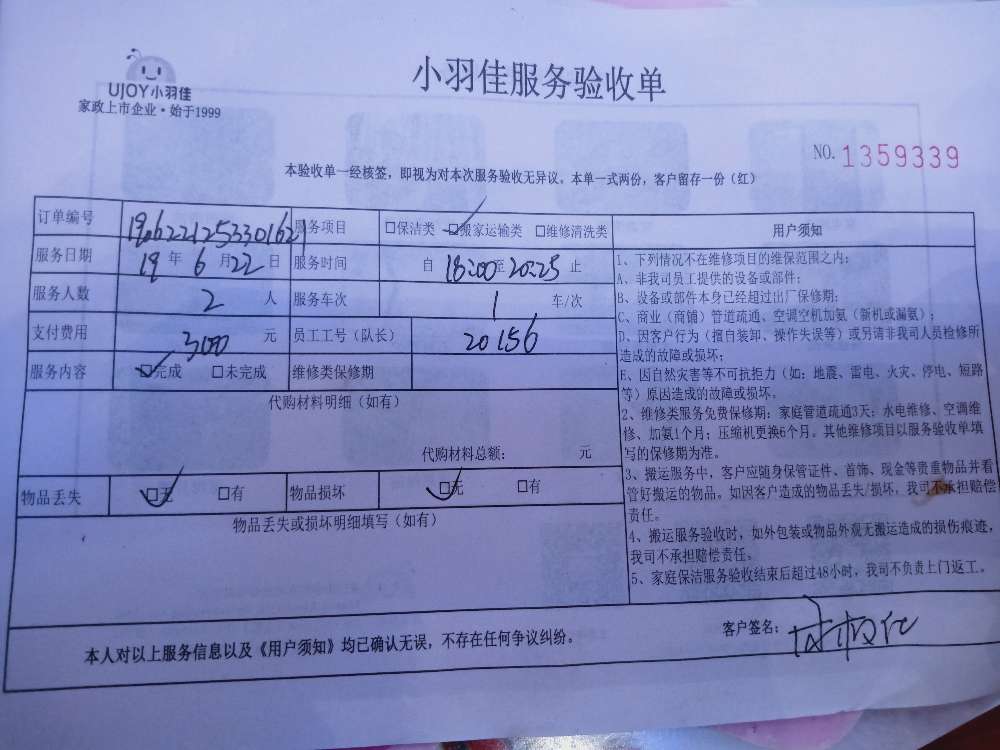 小羽佳服务验收单
UJOY小羽佳
家政上市企业·始于1999
NO. 1359339
本验收单一经核签，即视为对本次服务验收无异议。本单一式两份，客户留存一份（红）
订单编号 服务项目 □保洁类 ☑搬家运输类 □维修清洗类
服务日期 19 年 6 月 22 日 服务时间 自 18:00 至 20:25 止
服务人数 2 人 服务车次 1 车/次
支付费用 300 元 员工工号（队长） 20156
服务内容 ☑完成 □未完成 维修类保修期
代购材料明细（如有）
代购材料总额： 元
物品丢失 ☑无 □有 物品损坏 ☑无 □有
物品丢失或损坏明细填写（如有）
用户须知
1、下列情况不在维修项目的维保范围之内：
A、非我司员工提供的设备或部件；
B、设备或部件本身已经超过出厂保修期；
C、商业（商铺）管道疏通、空调空机加氨（新机或漏氨）；
D、因客户行为（擅自装卸、操作失误等）或另请非我司人员检修所
造成的故障或损坏；
E、因自然灾害等不可抗拒力（如：地震、雷电、火灾、停电、短路
等）原因造成的故障或损坏。
2、维修类服务免费保修期：家庭管道疏通3天；水电维修、空调维
修、加氨1个月；压缩机更换6个月。其他维修项目以服务验收单填
写的保修期为准。
3、搬运服务中，客户应随身保管证件、首饰、现金等贵重物品并看
管好搬运的物品。如因客户造成的物品丢失/损坏，我司不承担赔偿
责任。
4、搬运服务验收时，如外包装或物品外观无搬运造成的损伤痕迹，
我司不承担赔偿责任。
5、家庭保洁服务验收结束后超过48小时，我司不负责上门返工。
本人对以上服务信息以及《用户须知》均已确认无误，不存在任何争议纠纷。
客户签名：